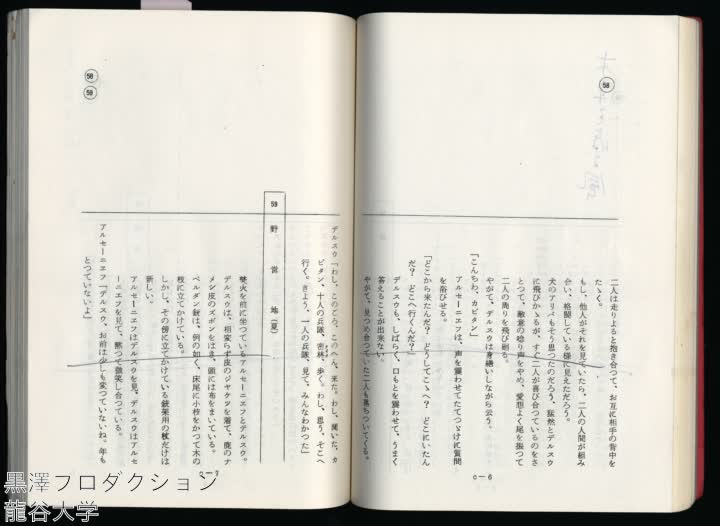 58
二人は走りよると抱き合つて、お互に相手の背中を
たゝく。
もし、他人がそれを見ていたら、二人の人間が組み
合い、格闘している様に見えただろう。
犬のアリパもそう思つたのだろう、猛然とデルスウ
に飛びかゝるが、すぐ二人が喜び合つているのをさ
とつて、敵意の唸り声をやめ、愛想よく尾を振つて
二人の周りを飛び廻る。
やがて、デルスウは身繕いしながら云う。
「こんちわ、カピタン」
アルセーニエフは、声を顫わせてたてつゞけに質問
を浴びせる。
「どこから来たんだ？どうしてこゝへ？どこにいたん
だ？どこへ行くんだ？」
デルスウも、しばらく、口もとを顫わせて、うまく
答えることが出来ない。
やがて、見つめ合つていた二人も落ちついてくる。
C－6
58
59
デルスウ「わし、このごろ、このへん、来た。わし、聞いた、カ
ピタン、十人の兵隊、密林、歩く。わし、思う、そこへ
行く。きよう、一人の兵隊、見て、みんなわかつた」
59 野営地（夏）
焚火を前に坐つているアルセーニエフとデルスウ。
デルスウは、相変らず皮のジャケツを着て、鹿のナ
メシ皮のズボンをはき、頭には布をまいている。
ベルダン銃は、例の如く、床尾に小枝をかつて木の
枝に立てかけている。
しかし、その傍に立てかけている銃架用の杖だけは
新しい。
アルセーニエフはデルスウを見、デルスウはアルセ
ーニエフを見て、黙つて微笑し合つている。
アルセーニエフ「デルスウ、お前は少しも変つていないね。年も
とつていないよ」
C－7
黒澤プロダクション
龍谷大学